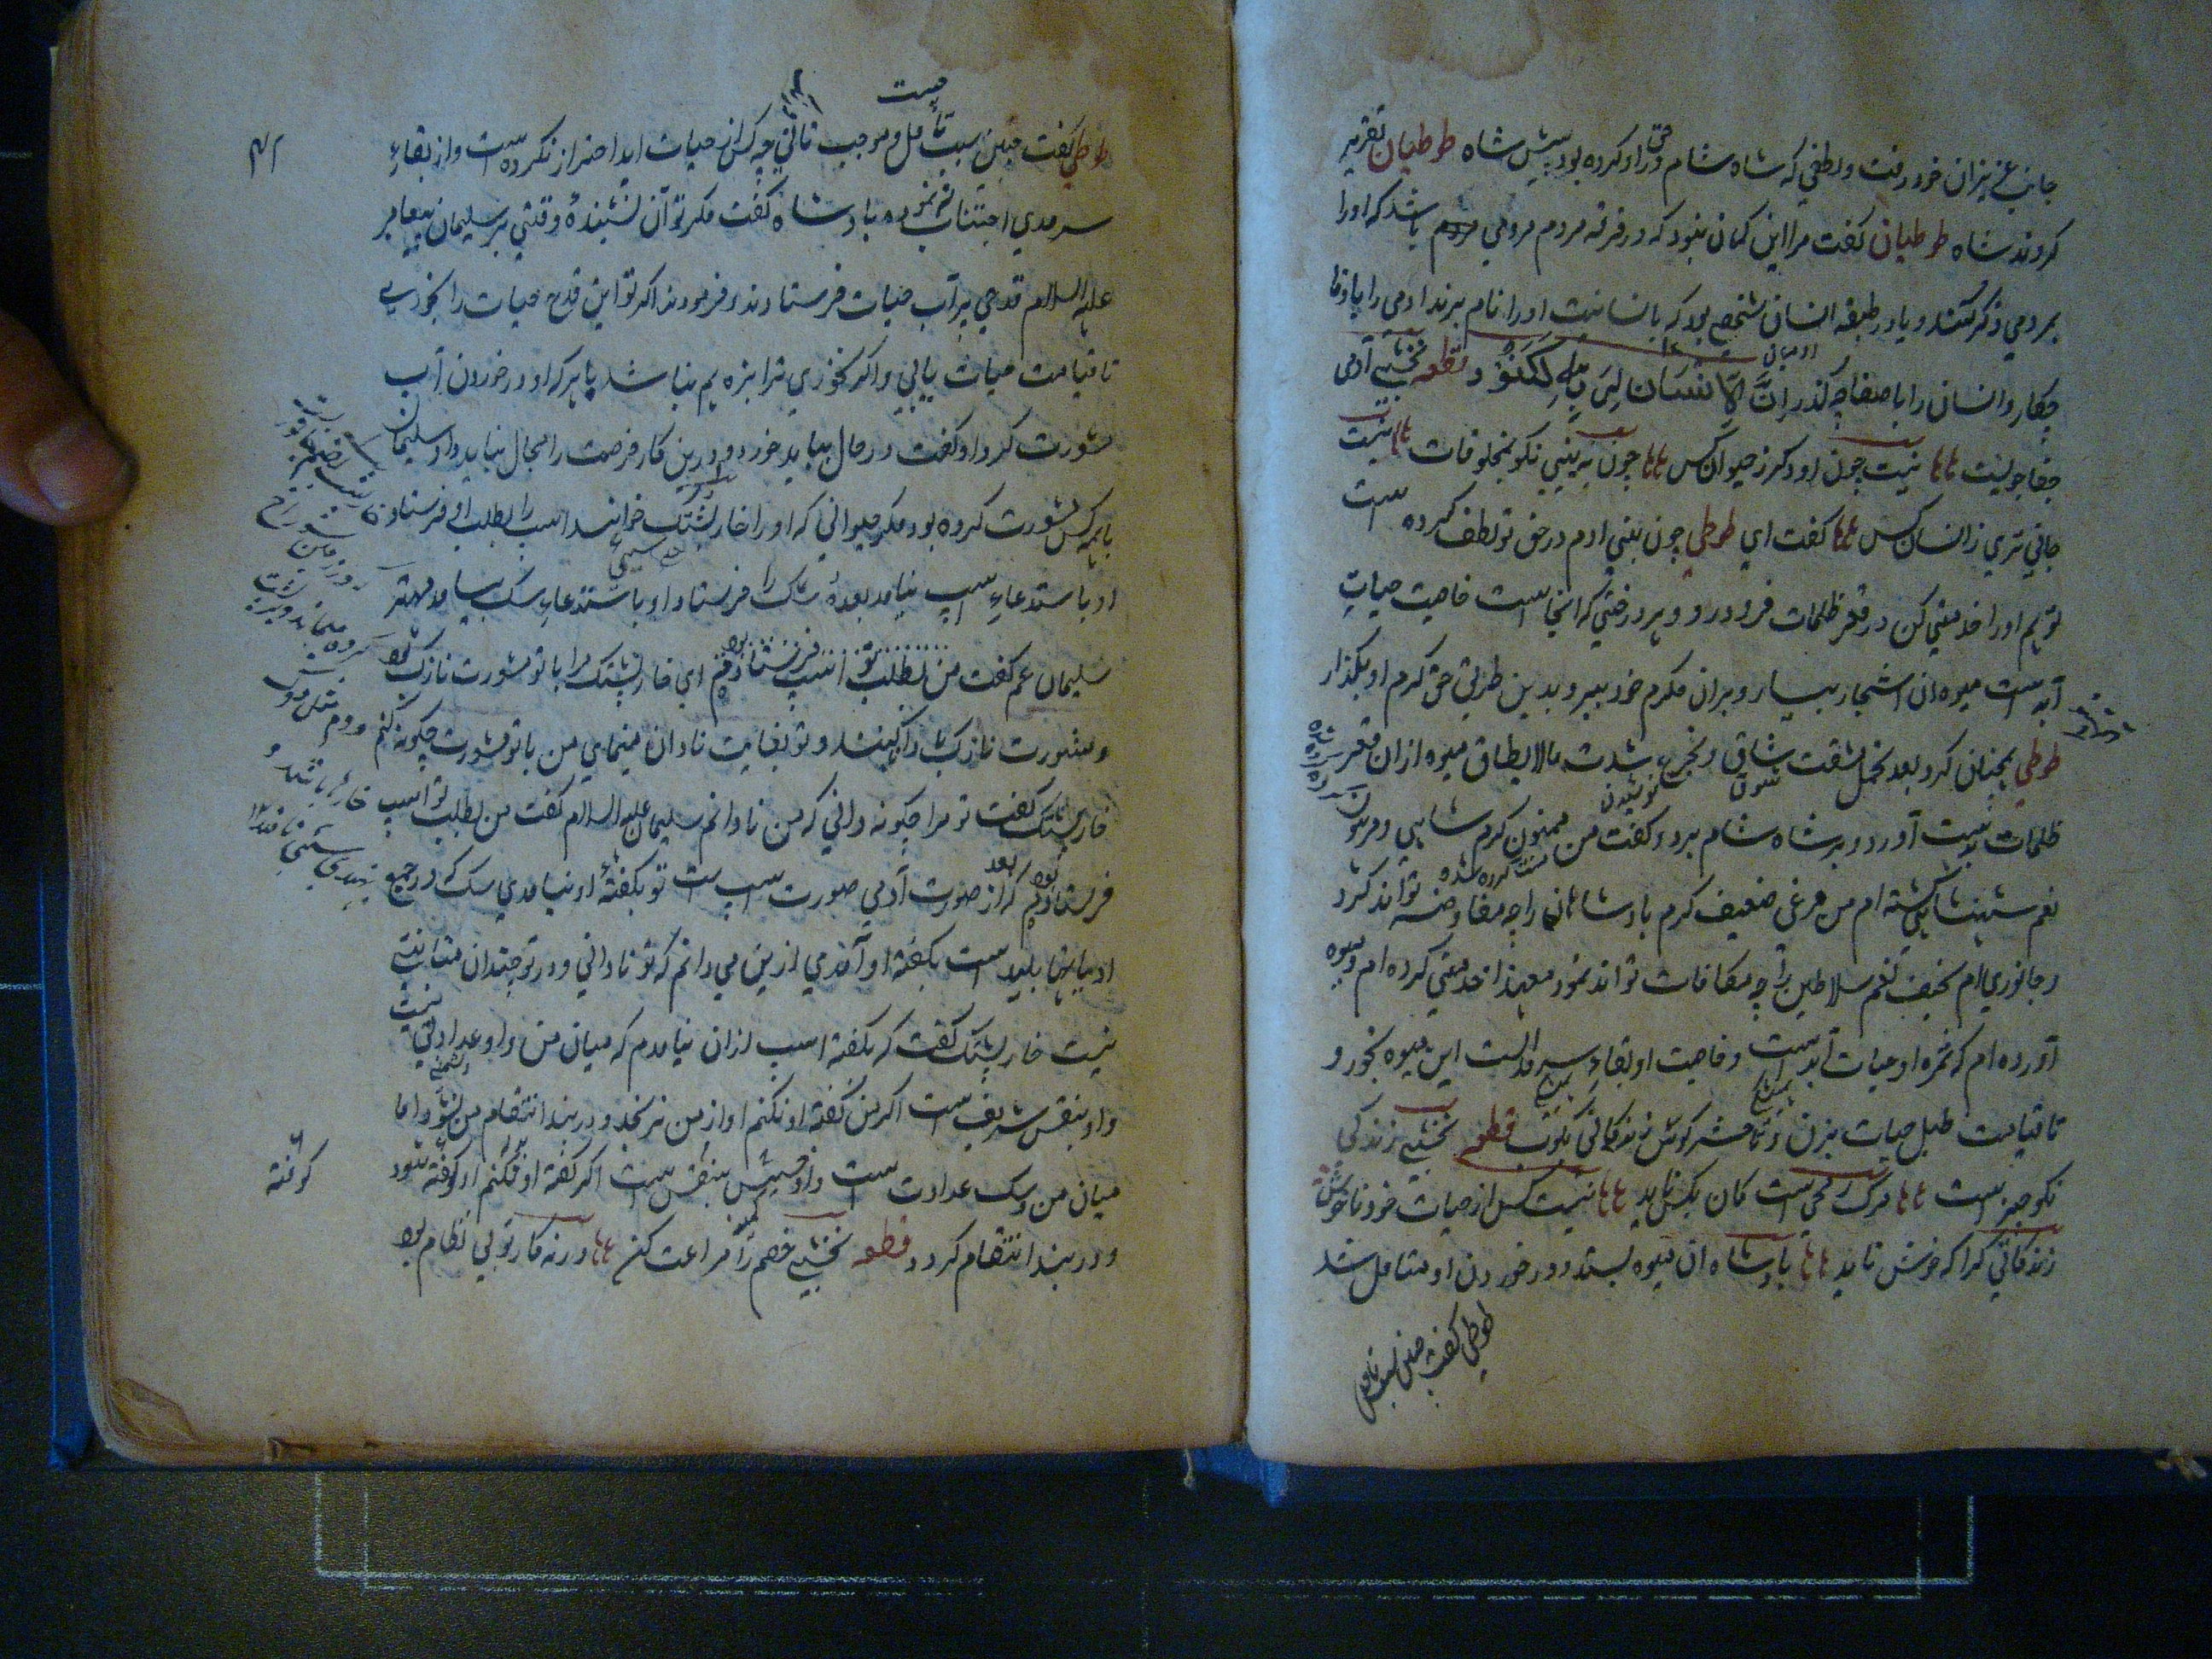 جانب عزیزان خود رفت و لطفی که شاه شام در حق او کرده بود پیش شاه طوطیان تقریر
کردند شاه طوطیان کفت مرا این کمان نبود که در فرقه مردم مردمی باشد که او را
بمردمی ذکر کنند و یا در طبقه انسان شخصی بود که بانسانیت او را نام برند ادمی را با وفا
چکار و انسان را با صفا چه کذر اِنَّ الاِنسَانَ لِرَبِّهِ لَکَنُود قطعه نخشبی آدمی
جفاجوئیست نیست چون او دکر ز حیوان کس چون ببینی نکو بمخلوقات نیست
جافی تری ز انسان کس کفت ای طوطی چون بنی ادم در حق تو لطف کرده است
تو هم او را خدمتی کن در قعر ظلمات فرو در و و بر درختی که انجا است خاصیت حیات
آب است میوه ان اشجار بیار و بران مکرم خود ببر و بدین طریق حق کرم او بکذار
طوطی همچنان کرد بعد تحمل مشقت شاق و تجرع شدت مالایطاق میوه ازان قعر
ظلمات بدست آورد و بر شاه شام برد و کفت من ممنون کرم شاهی و مرهون
نعم شهنشاهی کشته ام من مرغی ضعیف کرم پادشاهان را چه معاوضه توانم کرد
و جانوری ام نحیف نعم سلاطین را چه مکافات تواند نمود معهذا خدمتی کرده ام و میوه
آورده ام که ثمره او حیات ابد است و خاصیت او بقاء سرمد است این میوه بخور و
تا قیامت طبل حیات بزن و تا حشر کوس زندکانی بکوب قطعه نخشبی زندکی
نکو چیز است مرک زخمی است کان بکس ناید نیست کس از حیات خود ناخوش
زندکانی کرا که خوش ناید پادشاه ان میوه بستد و در خوردن او متامل شد
طوطی کفت چندین سبب تامل
چیست
طوطی کفت چندین سبب تأمل و موجب تانی چه کس از حیات ابد احتراز نکرده است و از بقاءِ
سرمدی اجتناب ننموده پادشاه کفت مکر تو آن نشنیدهٔ وقتی بر سلیمان پیغامبر
علیه السلام قدحی پر آب حیات فرستادند و فرمودند اکر تو این قدح حیات را بخوری
تا قیامت حیات یابی و اکر نخوری ترا بزه هم نباشد با هر که او در خوردن آب
مشورت کرد او کفت در حال بباید خورد و درین کار فرصت را مجال نباید داد سلیمان
با همه کس مشورت کرده بود مکر حیوانی که او را خارپشتک خوانند اسپ را بطلب او فرستاد
او باستدعاءِ اسپ نیامد بعدهٔ سک را فرستاد او باستدعاءِ سک بیامد مهتر
سلیمان عم کفت من بطلب تو اسپ فرستادم ای خارپشتک مرا با تو مشورت نازک بود
و مشورت نازک با دانا کنند و تو بغایت نادان مینمایی من با تو مشورت چکونه کنم
خارپشتک کفت تو مرا چکونه دانی که من نادانم سلیمان علیه السلام کفت من بطلب تو اسپ
فرستادم که از صورت آدمی صورت اسپ است تو بکفتهٔ او نیامدی سک که در جمیع
ادیانها پلید است بکفتهٔ او آمدی ازین می دانم که تو نادانی و در تو چندان متانتی
نیست خارپشتک کفت که بکفتهٔ اسپ ازان نیامدم که میان من و او عداوتی نیست
و او بنفس شریف است اکر من کفتهٔ او نکنم او از من نرنجد و در بند انتقام من نشود اما
میان من و سک عداوت است و او خسیس بنفس است اکر کفتهٔ او نکنم او کوفته شود
و در بند انتقام کردد قطعه نخشبی خصم را مراعت کن ورنه کار تو بی نظام بود
کوفته